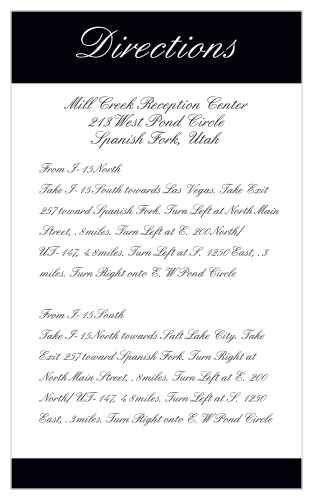 Directions
Mill Creek Reception Center
213 West Pond Circle
Spanish Fork, Utah
From I-15 North
Take I-15 South towards Las Vegas. Take Exit
257 toward Spanish Fork. Turn Left at North Main
Street, .8 miles. Turn Left at E. 200 North/
UT-147, 4.8 miles. Turn Left at S. 1250 East, .3
miles. Turn Right onto E. W Pond Circle
From I-15 South
Take I-15 North towards Salt Lake City. Take
Exit 257 toward Spanish Fork. Turn Right at
North Main Street, .8 miles. Turn Left at E. 200
North/ UT-147, 4.8 miles. Turn Left at S. 1250
East, .3 miles. Turn Right onto E. W Pond Circle